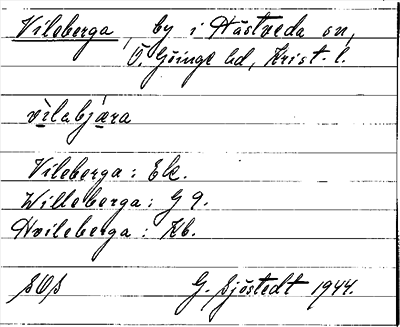 Vileberga, by i Hästveda sn,
Ö. Göinge hd, Krist. l.
vìlabjära
Vileberga: Ek.
Willeberga: G 9.
Hvileberga: Kb.
SOS G. Sjöstedt 1944.